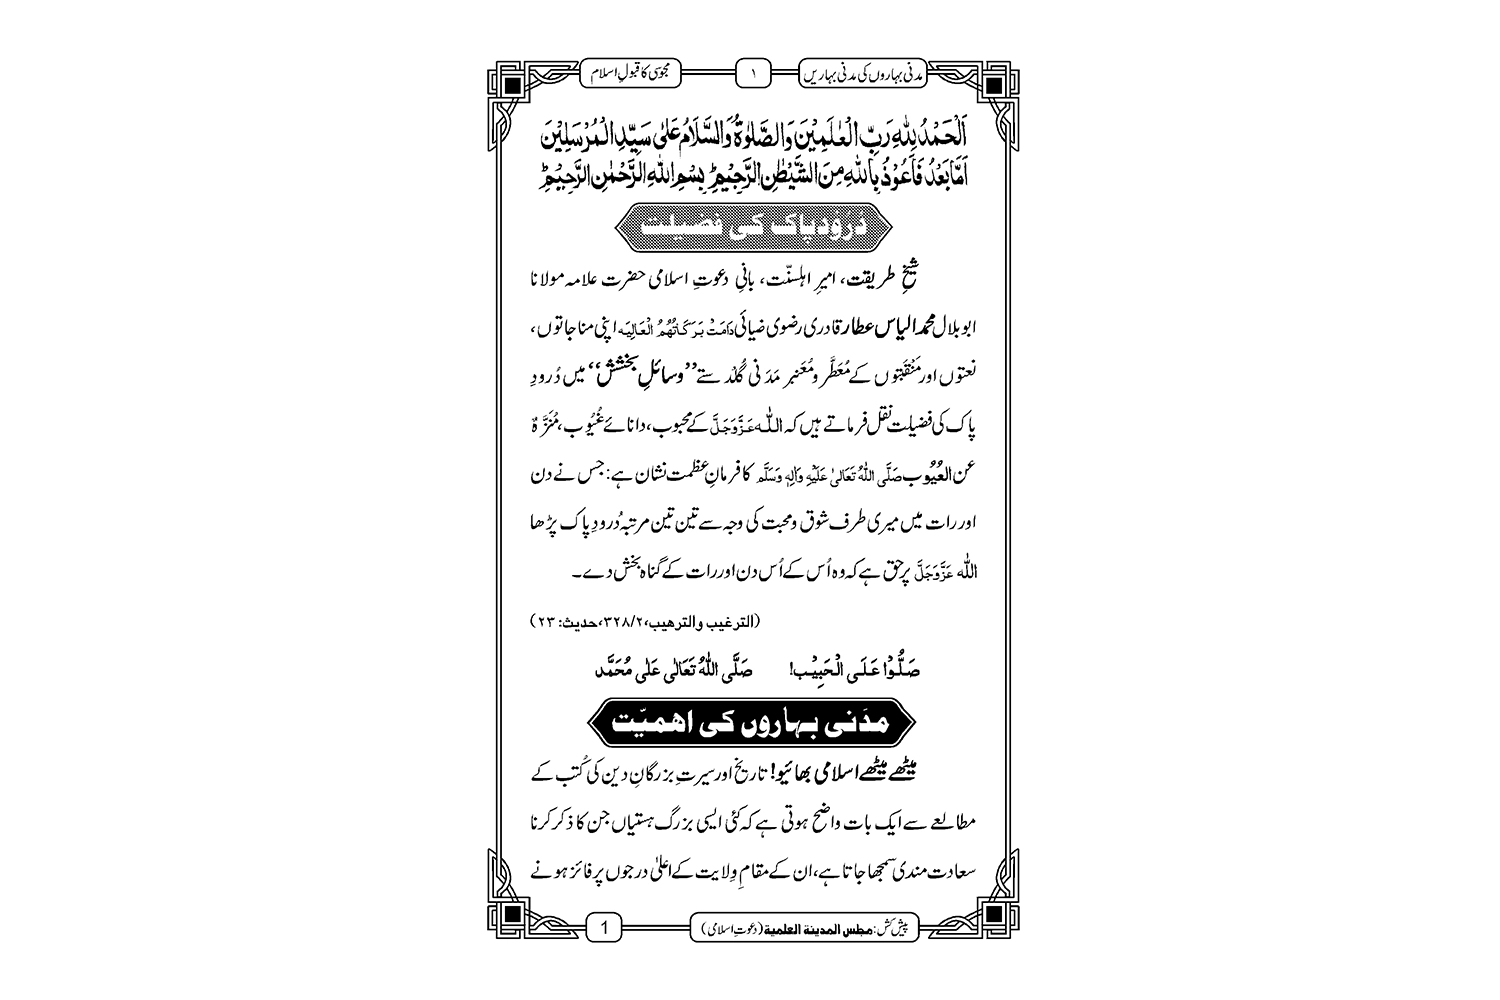 مدنی بہاروں کی مدنی بہاریں ۱ مجوسی کا قبولِ اسلام
اَلْحَمْدُ لِلّٰہِ رَبِّ الْعٰلَمِیْنَ وَالصَّلٰوۃُ وَالسَّلَامُ عَلٰی سَیِّدِ الْمُرْسَلِیْنَ
اَمَّا بَعْدُ فَاَعُوْذُ بِاللّٰہِ مِنَ الشَّیْطٰنِ الرَّجِیْمِ ؕ بِسْمِ اللّٰہِ الرَّحْمٰنِ الرَّحِیْمِ ؕ
دُرُود پاک کی فضیلت
شیخِ طریقت، امیرِ اہلسنّت، بانیِ دعوتِ اسلامی حضرت علامہ مولانا
ابو بلال محمد الیاس عطار قادری رضوی ضیائی دَامَتْ بَرَکَاتُہُمُ الْعَالِیَہ اپنی مناجاتوں،
نعتوں اور مَنْقَبَتوں کے مُعَطَّر و مُعَنبر مَدَنی گُلْد ستے ’’وسائلِ بخشش‘‘ میں دُرودِ
پاک کی فضیلت نقل فرماتے ہیں کہ اللہ عَزَّوَجَلَّ کے محبوب، دانائے غُیُوب، مُنَزَّہٌ
عن العُیُوب صَلَّی اللّٰہُ تَعَالٰی عَلَیْہِ وَاٰلِہٖ وَسَلَّم کا فرمانِ عظمت نشان ہے: جس نے دن
اور رات میں میری طرف شوق و محبت کی وجہ سے تین تین مرتبہ دُرودِ پاک پڑھا
اللّٰہ عَزَّوَجَلَّ پر حق ہے کہ وہ اُس کے اُس دن اور رات کے گناہ بخش دے۔
(الترغیب والترھیب،۳۲۸/۲،حدیث: ۲۳)
صَلُّوْا عَلَی الْحَبِیْب! صَلَّی اللّٰہُ تَعَالٰی عَلٰی مُحَمَّد
مدَنی بہاروں کی اھمیّت
میٹھے میٹھے اسلامی بھائیو! تاریخ اور سیرتِ بزرگانِ دین کی کُتب کے
مطالعے سے ایک بات واضح ہوتی ہے کہ کئی ایسی بزرگ ہستیاں جن کا ذکر کرنا
سعادت مندی سمجھا جاتا ہے، ان کے مقامِ وِلایت کے اعلیٰ درجوں پر فائز ہونے
پیش کش: مجلس المدینۃ العلمیۃ (دعوتِ اسلامی) 1